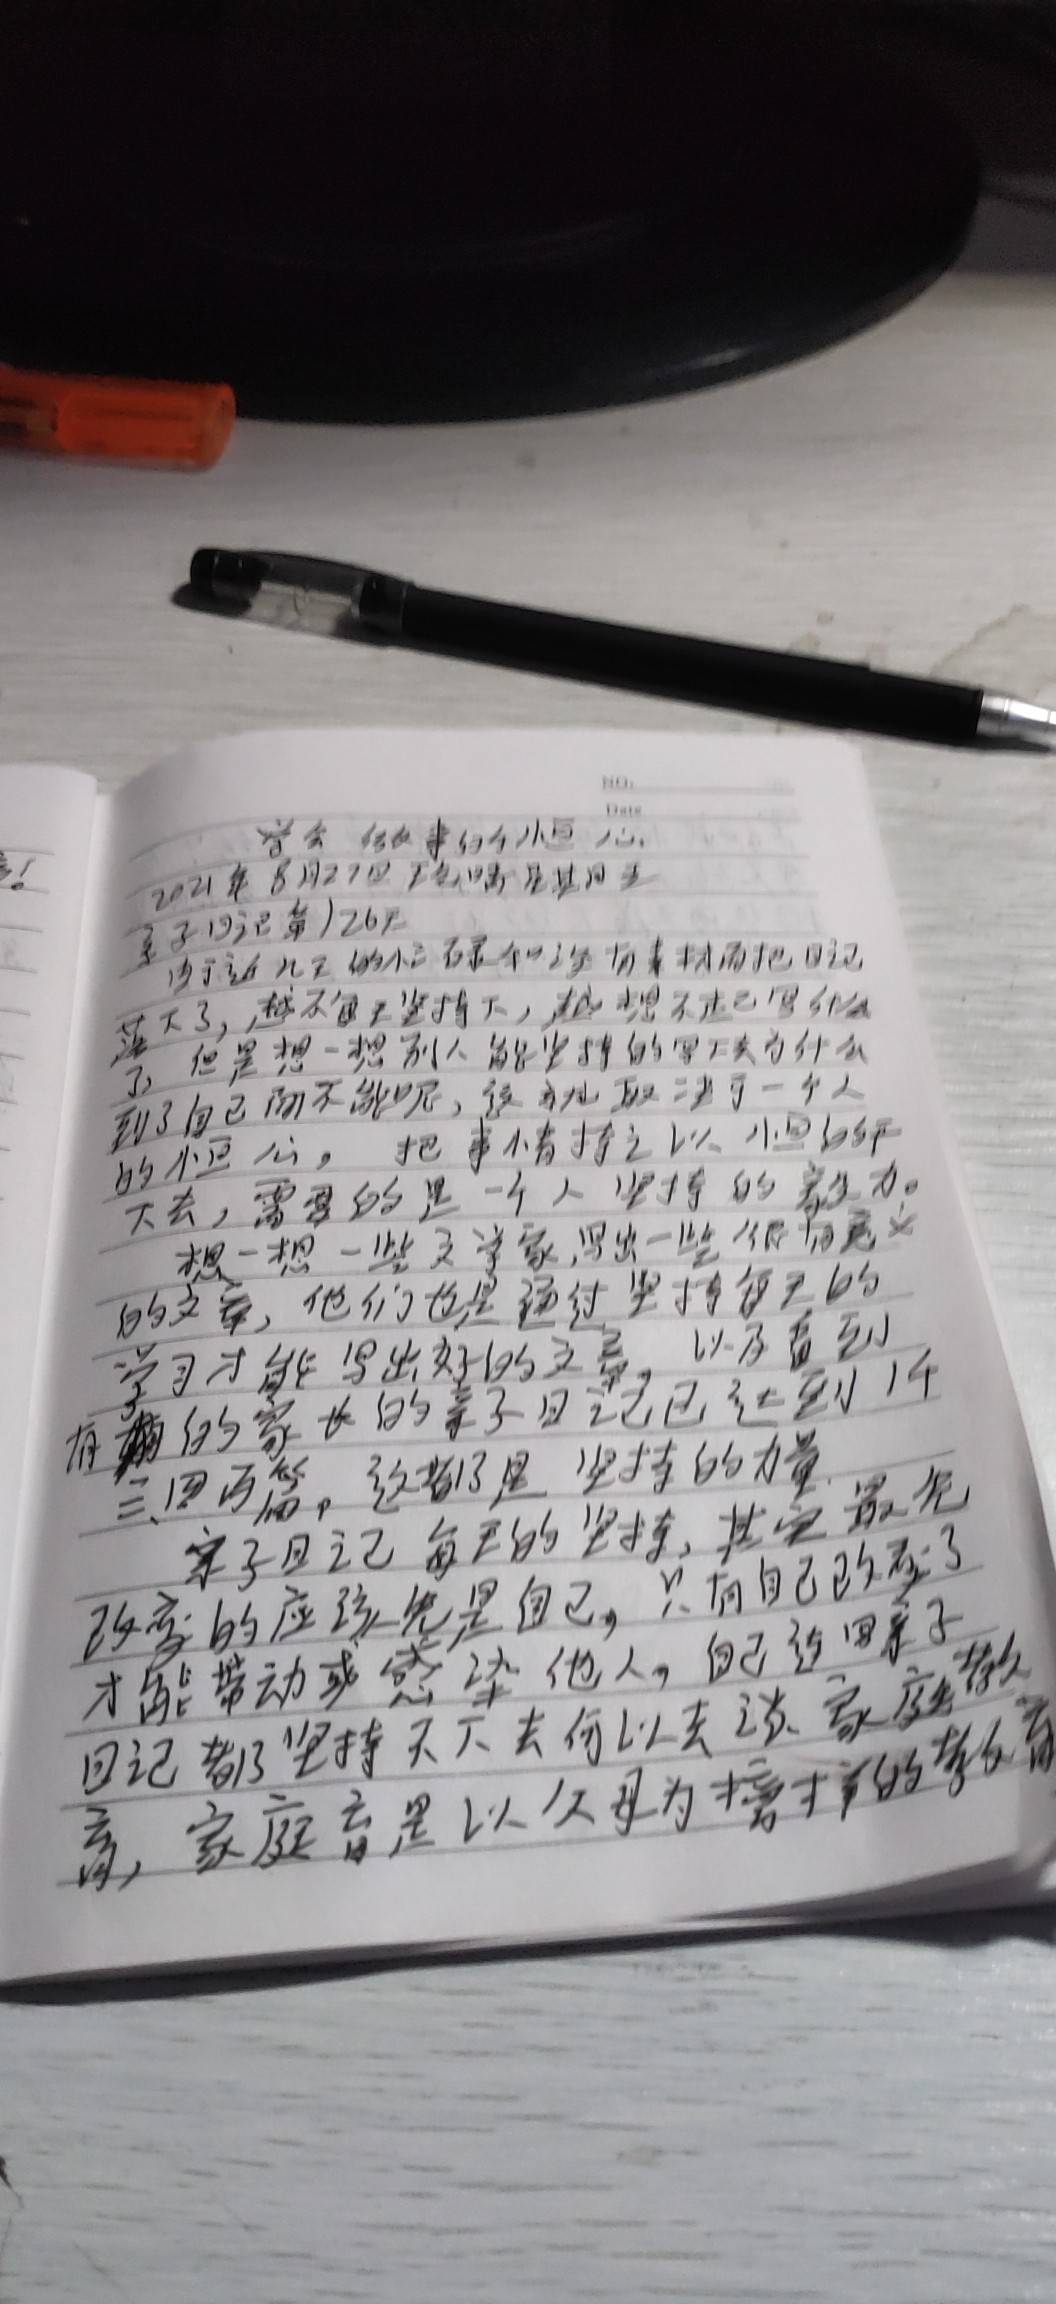 学会做事的个恒心
NO.
Date
2021年8月27日 天气晴 星期五
亲子日记第126天
由于近几天的忙碌和没有素材而把日记
落下了，越不每天坚持下，越想不起己写什么
了，但是想一想别人能坚持的写下去为什么
到了自己而不能呢，这就取决于一个人
的恒心。 把事情持之以恒的干
下去，需要的是一个人坚持的毅力。
想一想一些文学家，写出一些很有意义
的文章，他们也是通过坚持每天的
学习才能写出好的文章。 以及看到
有的家长的亲子日记已达到1千
三、四百篇，这都是坚持的力量.
亲子日记每天的坚持，其实最先
改变的应该先是自己，只有自己改变了
才能带动或感染他人。自己连写亲子
日记都坚持不下去何以去谈家庭教
育，家庭育是以父母为榜样的教育